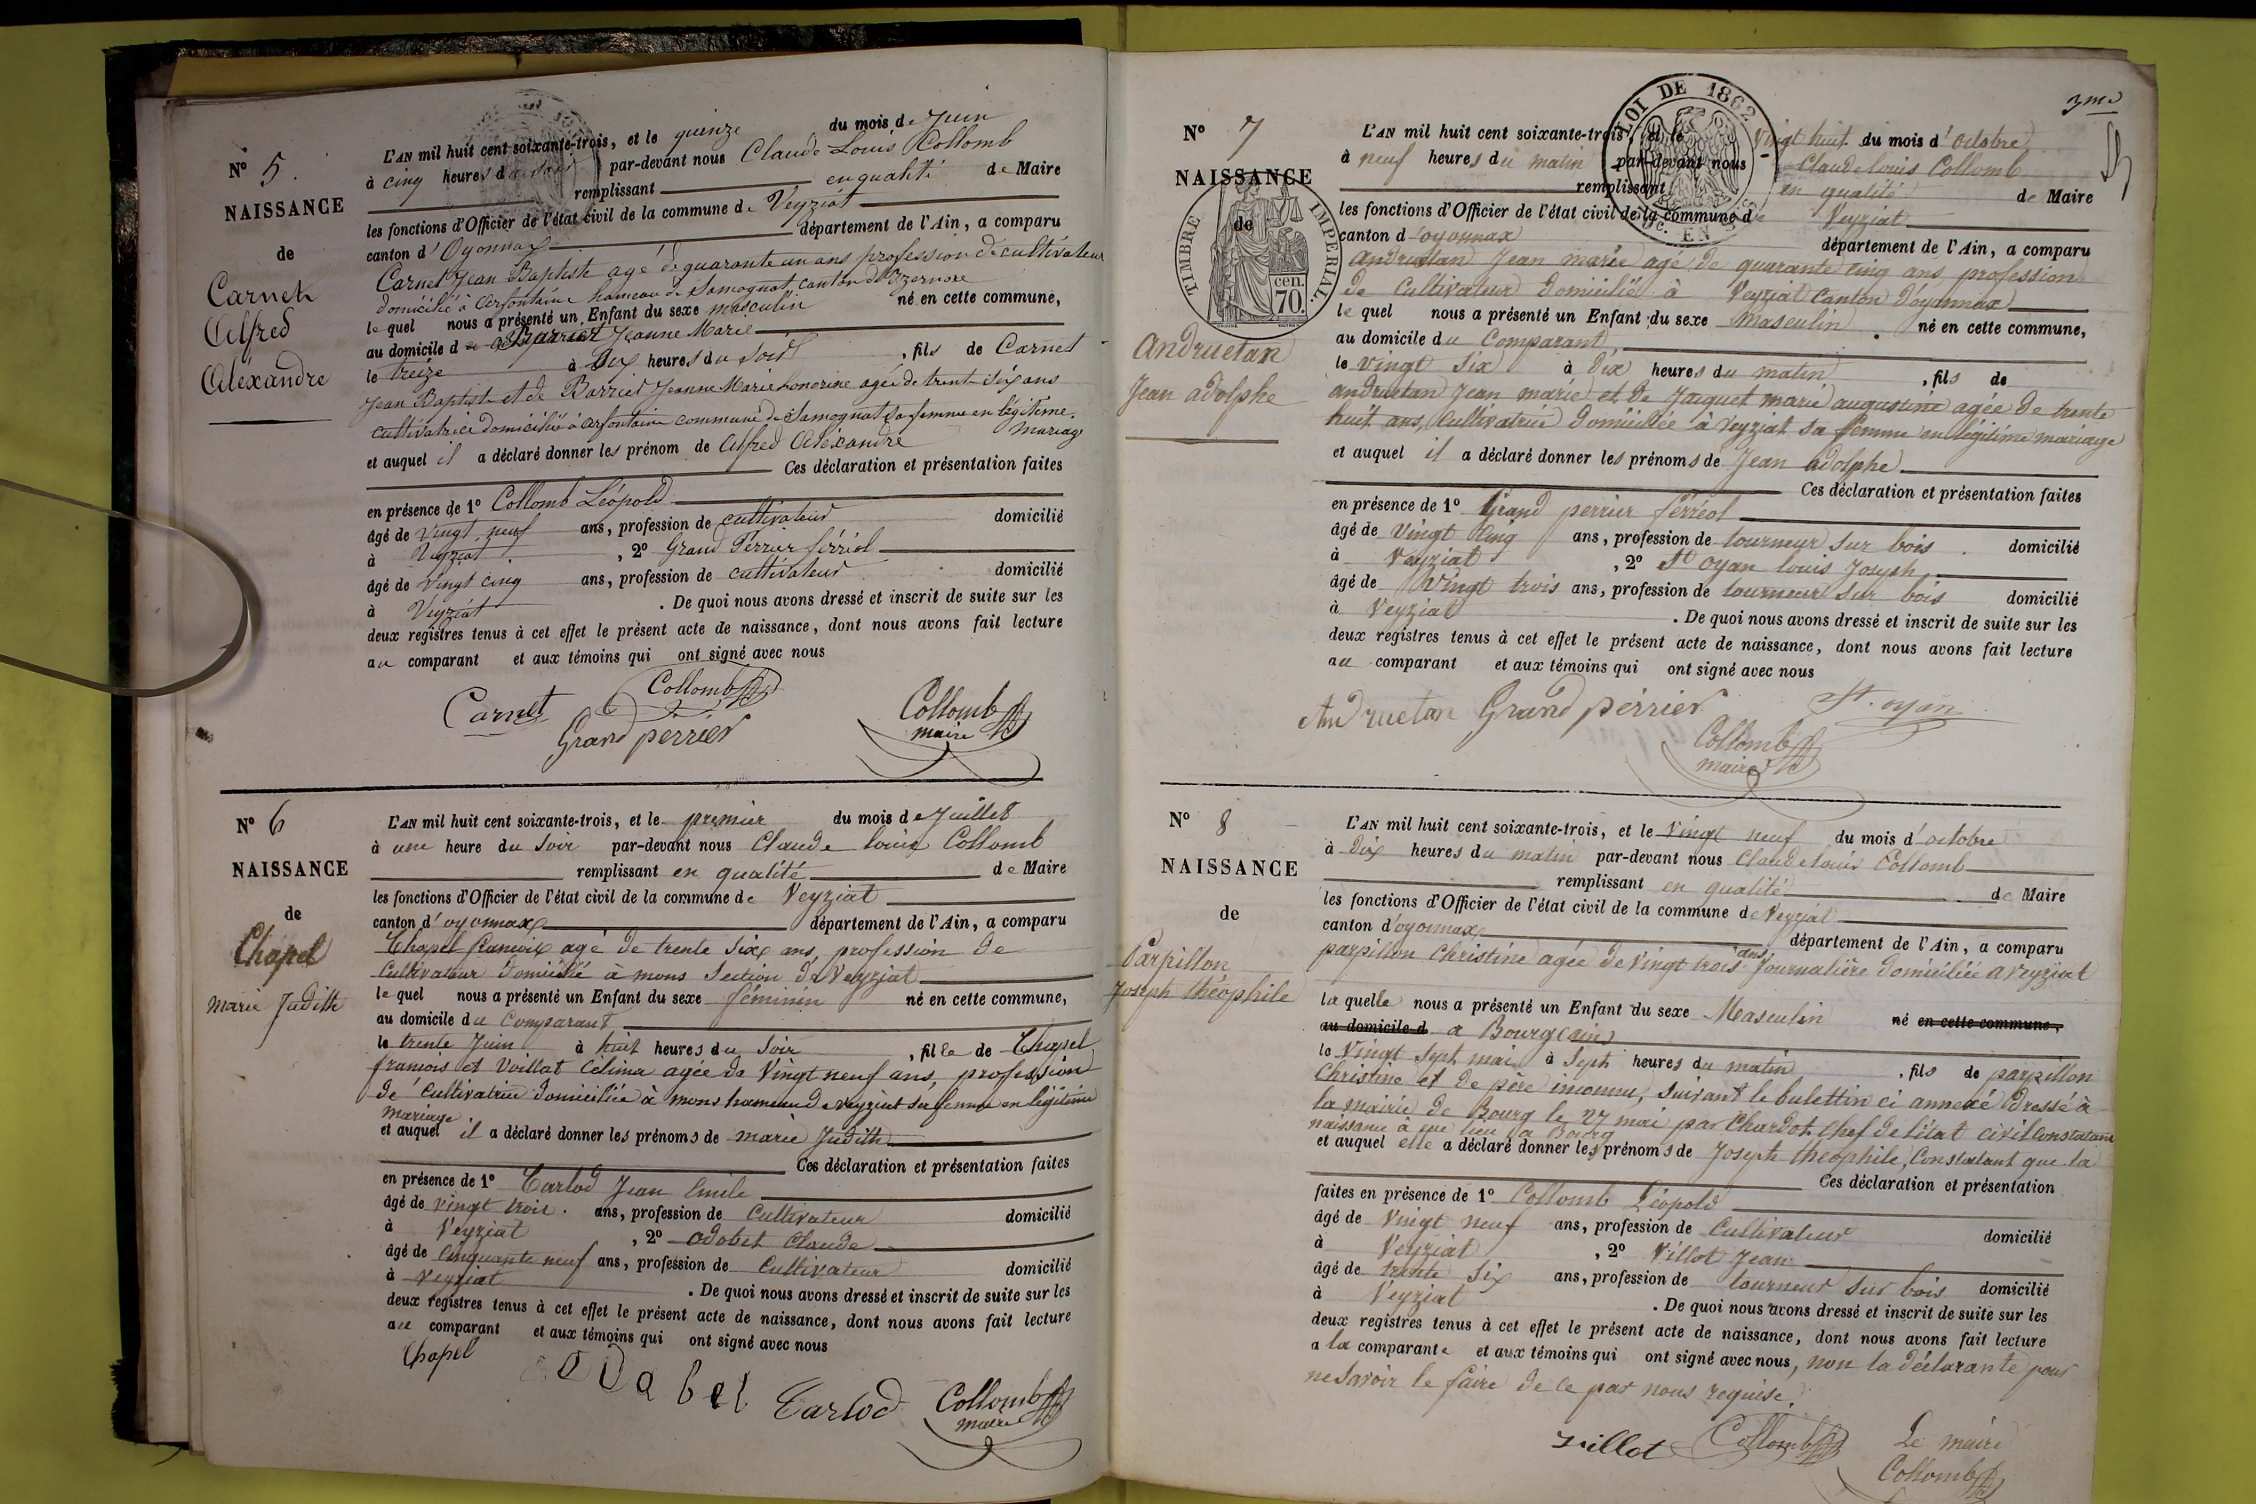 N° 5.
NAISSANCE
de
Carnet
Alfred
Aléxandre
L'AN mil huit cent soixante-trois, et le quinze du mois de Juin
à cinq heures du soir par-devant nous Claude Louis Collomb
remplissant en qualité de Maire
les fonctions d'Officier de l'état civil de la commune de Veyziat
canton d'Oyonnax département de l'Ain, a comparu
Carnet Jean Baptiste agé de quarante un ans profession de cultivateur
domicilié à Cerfontaine hameau de Samognat, canton d'Izernore
le quel nous a présenté un Enfant du sexe masculin né en cette commune,
au domicile de Barriet Jeanne Marie
le treize à Dix heures du soir, fils de Carnet
Jean Baptiste et de Barriet Jeanne Marie honorine agée de trente six ans
cultivatrice domiciliée à Cerfontaine commune de Samognat sa femme en légitime
mariage
et auquel il a déclaré donner les prénom de Alfred Aléxandre
Ces déclaration et présentation faites
en présence de 1° Collomb Léopold
âgé de vingt neuf ans, profession de cultivateur domicilié
à Veyziat, 2° Grand Perrier férréol
âgé de vingt cinq ans, profession de cultivateur domicilié
à Veyziat. De quoi nous avons dressé et inscrit de suite sur les
deux registres tenus à cet effet le présent acte de naissance, dont nous avons fait lecture
au comparant et aux témoins qui ont signé avec nous
Carnet Collomb
Grand perrier
Collomb
maire
N° 6
NAISSANCE
de
Chapel
marie Judith
L'AN mil huit cent soixante-trois, et le premier du mois de Juillet
à une heure du soir par-devant nous Claude louis Collomb
remplissant en qualité de Maire
les fonctions d'Officier de l'état civil de la commune de Veyziat
canton d'oyonnax département de l'Ain, a comparu
Chapel francois agé de trente six ans, profession de
Cultivateur domicilié à mons section de Veyziat
le quel nous a présenté un Enfant du sexe féminin né en cette commune,
au domicile du Comparant
le trente Juin à huit heures du soir, fille de Chapel
francois et Vuillat Célima agée de Vingt neuf ans, profession
de Cultivatrice domiciliée à mons hameau de veyziat sa femme en légitime
mariage.
et auquel il a déclaré donner les prénoms de marie Judith
Ces déclaration et présentation faites
en présence de 1° Tarlod Jean Emile
âgé de vingt trois. ans, profession de Cultivateur domicilié
à Veyziat, 2° odobet Claude
âgé de cinquante neuf ans, profession de Cultivateur domicilié
à veyziat. De quoi nous avons dressé et inscrit de suite sur les
deux registres tenus à cet effet le présent acte de naissance, dont nous avons fait lecture
au comparant et aux témoins qui ont signé avec nous
Chapel
Tarlod Collomb
maire
3me
N° 7
NAISSANCE
de
TIMBRE IMPERIAL.
cen.
70.
LOI DE 1862
EN
Andruetan
Jean adolphe
L'AN mil huit cent soixante-trois, et le Vingt huit du mois d'octobre
à neuf heures du matin par-devant nous Claude louis Collomb
remplissant en qualité de Maire
les fonctions d'Officier de l'état civil de la commune de Veyziat
canton d'oyonnax département de l'Ain, a comparu
andruetan Jean marie agé de quarante cinq ans, profession
de Cultivateur domicilié à Veyziat Canton d'oyonnax
le quel nous a présenté un Enfant du sexe Masculin né en cette commune,
au domicile du Comparant
le vingt six à dix heures du matin, fils de
andruetan Jean marie et de Jacquet marie augustine agée de trente
huit ans, Cultivatrice domiciliée à Veyziat sa femme en légitime mariage
et auquel il a déclaré donner les prénoms de Jean adolphe
Ces déclaration et présentation faites
en présence de 1° Grand perrier férréol
âgé de vingt cinq ans, profession de tourneur sur bois. domicilié
à Veyziat, 2° St oyan louis Joseph
âgé de Vingt trois ans, profession de tourneur sur bois domicilié
à Veyziat. De quoi nous avons dressé et inscrit de suite sur les
deux registres tenus à cet effet le présent acte de naissance, dont nous avons fait lecture
au comparant et aux témoins qui ont signé avec nous
Andruetan Grand perrier St. oyan
Collomb
maire
N° 8
NAISSANCE
de
Parpillon
Joseph théophile
L'AN mil huit cent soixante-trois, et le Vingt neuf du mois d'octobre
à dix heures du matin par-devant nous Claude louis Collomb
remplissant en qualité de Maire
les fonctions d'Officier de l'état civil de la commune de Veyziat
canton d'oyonnax département de l'Ain, a comparu
parpillon Christine agée de vingt trois ans Journalière domiciliée a veyziat
la quelle nous a présenté un Enfant du sexe Masculin né en cette commune,
au domicile d a Bourg (ain)
le Vingt sept mai à sept heures du matin, fils de parpillon
Christine et de père inconnu, suivant le bulettin ci annexé dressé à
la mairie de Bourg le 27 mai par Chardot chef de l'état civil Constatant
naissance a eu lieu a Bourg
et auquel elle a déclaré donner les prénoms de Joseph théophile, Constatant que la
Ces déclaration et présentation
faites en présence de 1° Collomb Léopold
âgé de vingt neuf ans, profession de Cultivateur domicilié
à Veyziat, 2° Villot Jean
âgé de trente six ans, profession de tourneur sur bois domicilié
à Veyziat. De quoi nous avons dressé et inscrit de suite sur les
deux registres tenus à cet effet le présent acte de naissance, dont nous avons fait lecture
a la comparante et aux témoins qui ont signé avec nous, non la déclarante pour
ne savoir le faire de ce par nous requise.
Villot Collomb Le maire
Collomb